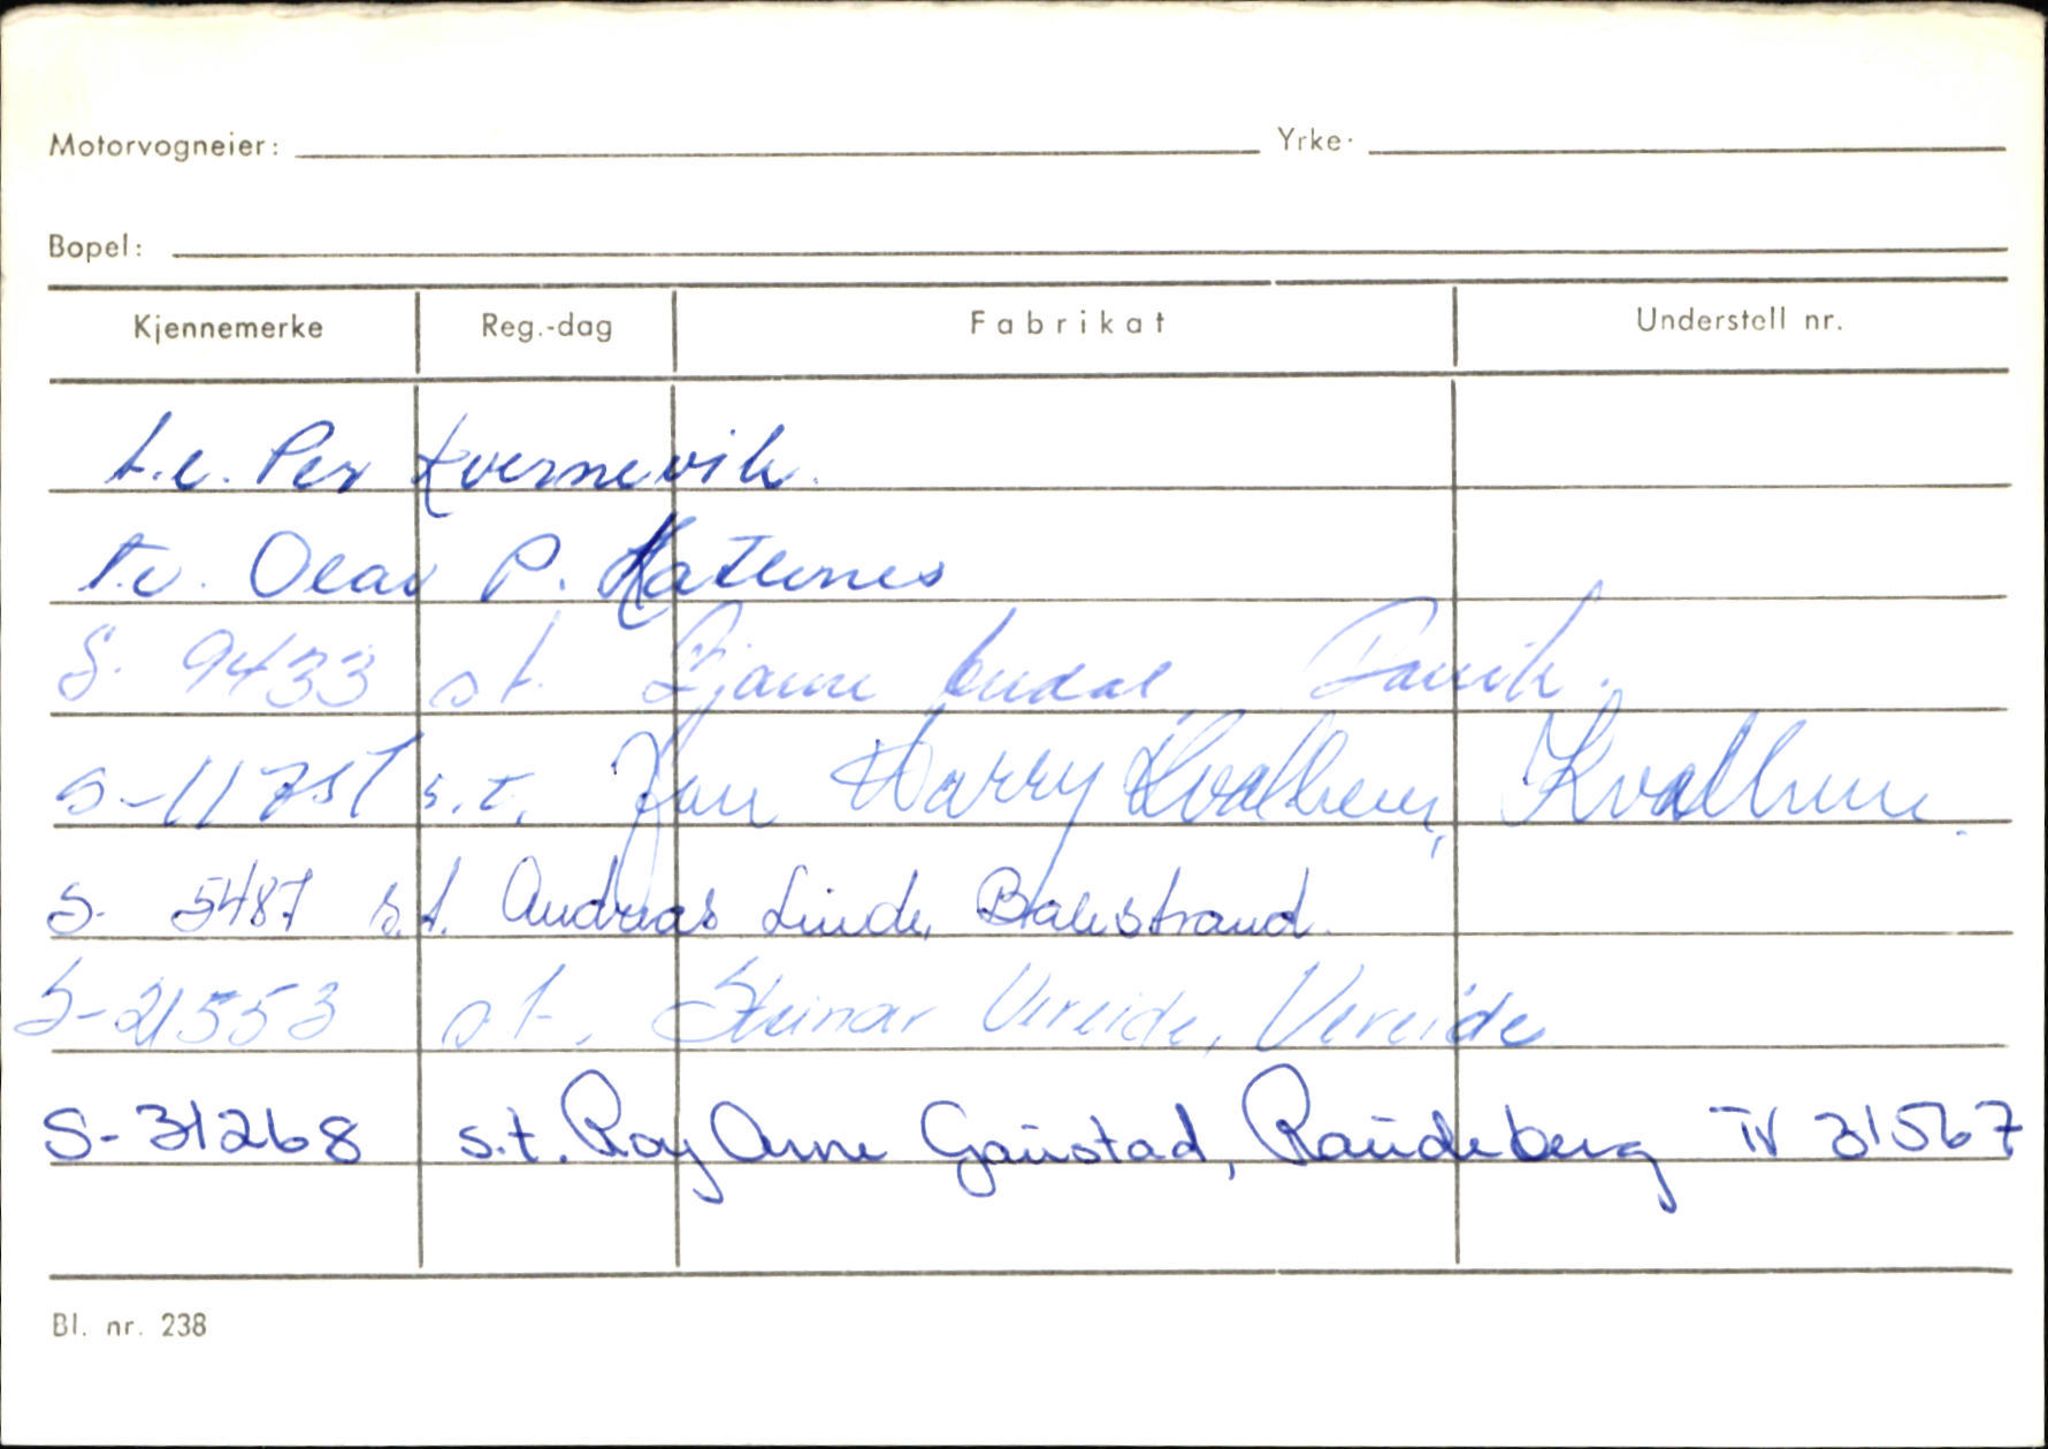 Motorvogneier: Yrke:
Bopel:
Kjennemerke Reg.-dag Fabrikat Understell nr.
t.e. Per Kvernevik.
t.e. Olav P.
S. 9433 s.t. Davik.
S-11751 s.t. Jan Harry Kvalheim, Kvalheim.
S. 5487 s.t. Andreas Linde, Balestrand.
S-21553 s.t. Steinar Vereide, Vereide
S-31268 s.t. Roy Arne Gaustad, Raudeberg TV 31567
Bl. nr. 238